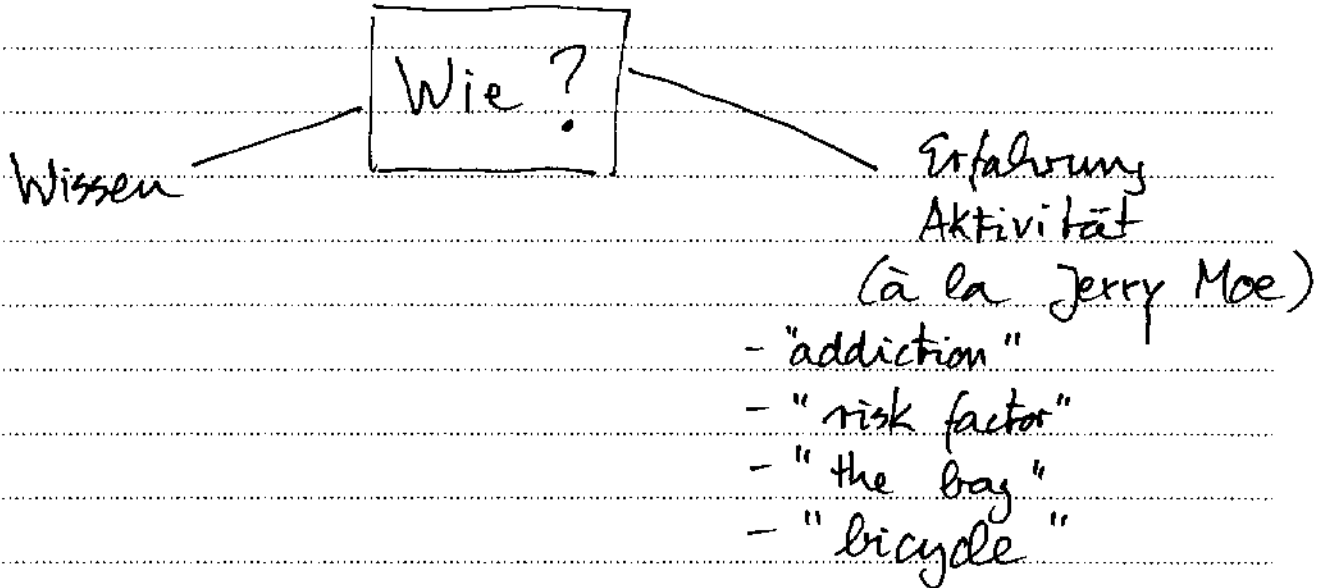 Wie ?
Wissen
Erfahrung
Aktivität
(à la Jerry Moe)
- "addiction"
- "risk factor"
- "the bag"
- "bicycle"